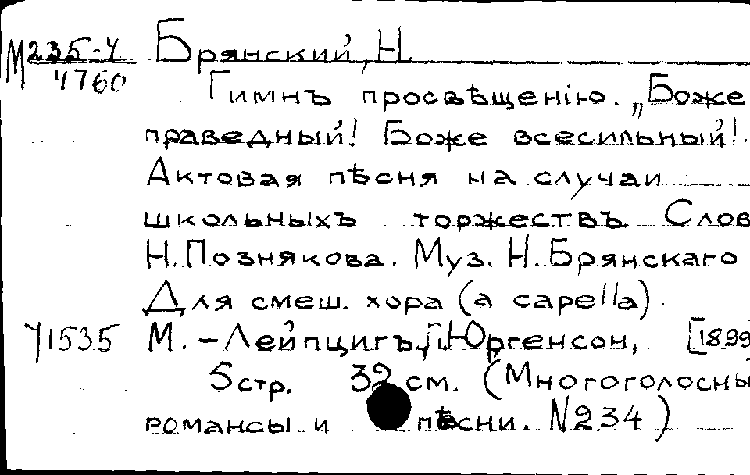 М 235-4 Брянский, Н.
4760
Гимнъ просвѣщенію. „Боже
праведный! Боже всесильный!
Актовая пѣсня на случаи
школьныхъ торжествъ. Слов
Н. Познякова. Муз. Н. Брянскаго
Для смеш. хора (a capella).
У1535 М. - Лейпцигъ, П. Юргенсон, [1899
5 стр. 32 см. (Многоголосны
романсы и пѣсни. N234)